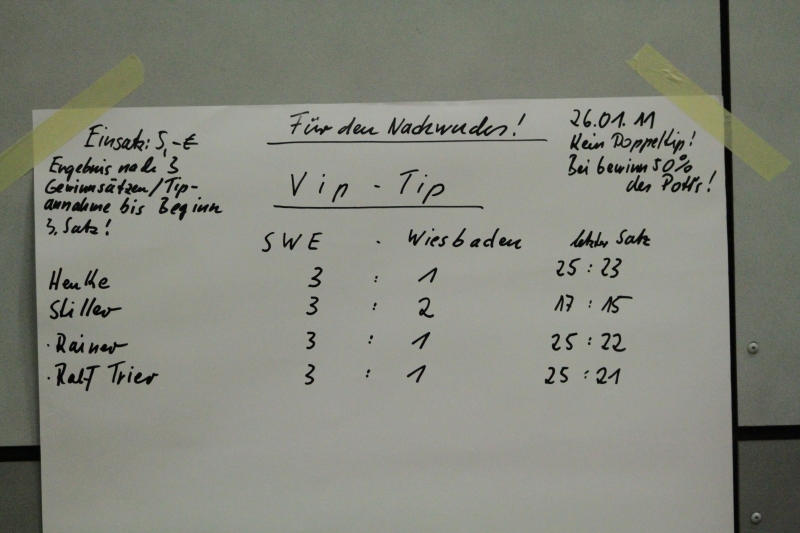 Für den Nachwuchs!
26.01.11
Kein Doppeltip!
Bei Gewinn 50%
des Potts!
Einsatz: 5,-€
Ergebnis nach 3
Gewinnsätzen/Tip-
annahme bis Beginn
3. Satz!
Vip - Tip
SWE - Wiesbaden letzter Satz
Henke 3 : 1 25 : 23
Stiller 3 : 2 17 : 15
· Rainer 3 : 1 25 : 22
· Ralf Trier 3 : 1 25 : 21